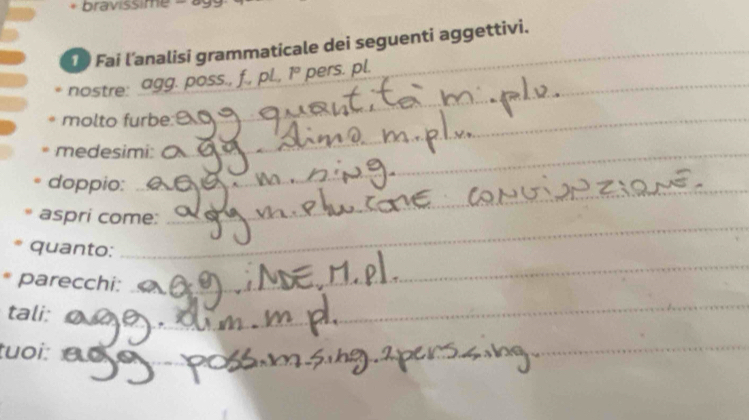 • bravissime
1 Fai l'analisi grammaticale dei seguenti aggettivi.
• nostre: agg. poss., f., pl., 1ª pers. pl.
• molto furbe: agg quant.tà m.plu.
• medesimi: agg. dimo m.plu.
• doppio: agg. m. sing.
• aspri come: agg m.plu. CONE
• quanto:
• parecchi: agg. iNDE. M.pl.
tali: agg. dim. m pl.
tuoi: agg poss.m.sing.2pers.sing.